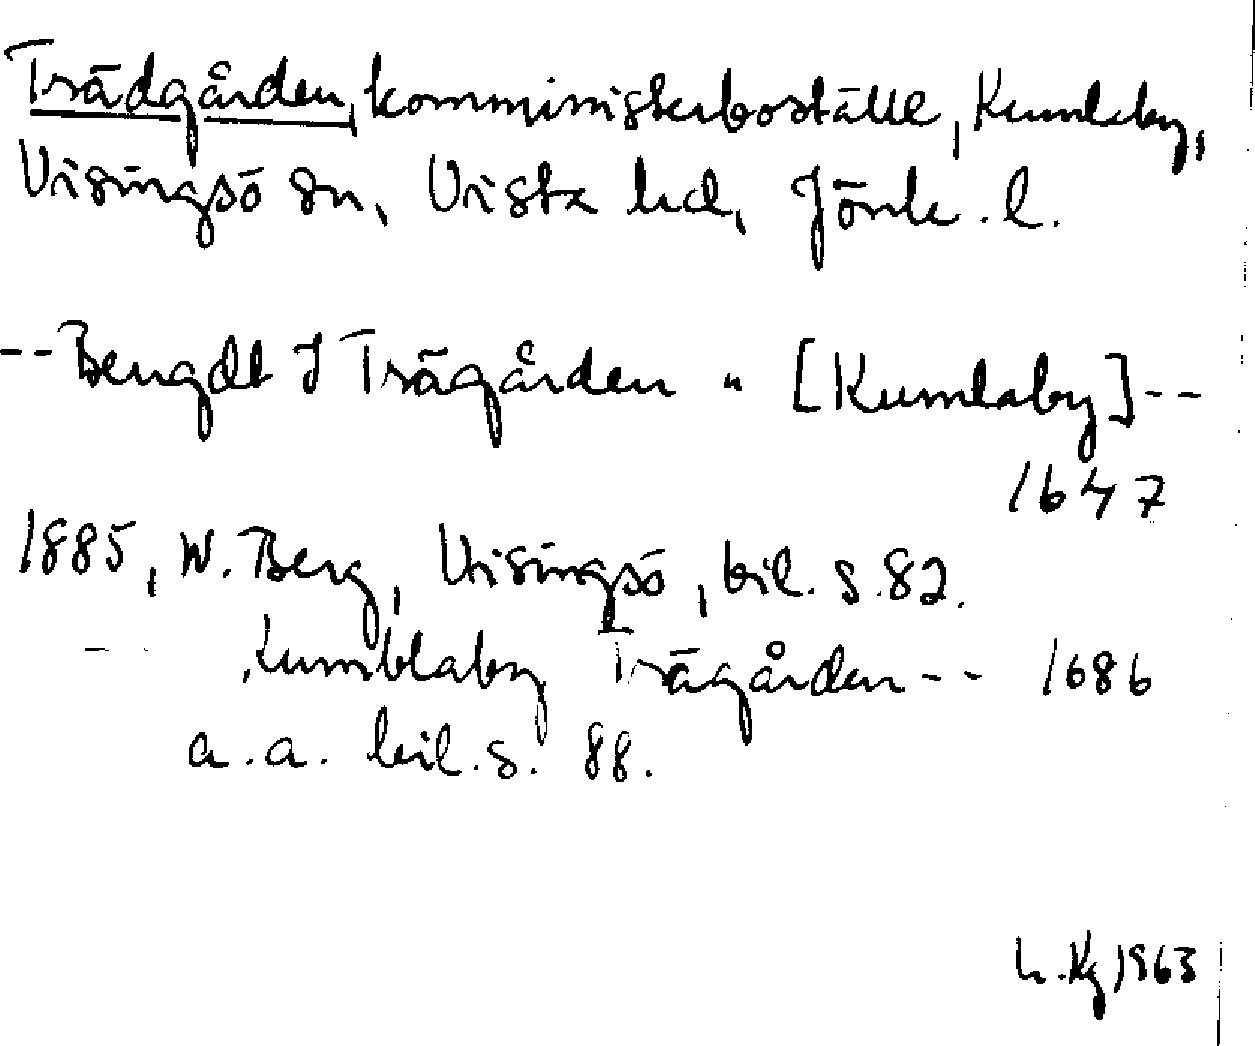 Trädgården, komministerboställe, Kumlaby,
Visingsö sn, Vista hd, Jönk. l.
--Bengdt I Trägården " [Kumlaby]--
1647
1885, W. Berg, Visingsö, bil. s. 82.
-- Kumblaby Trägården -- 1686
a. a. bil. s. 88.
1963